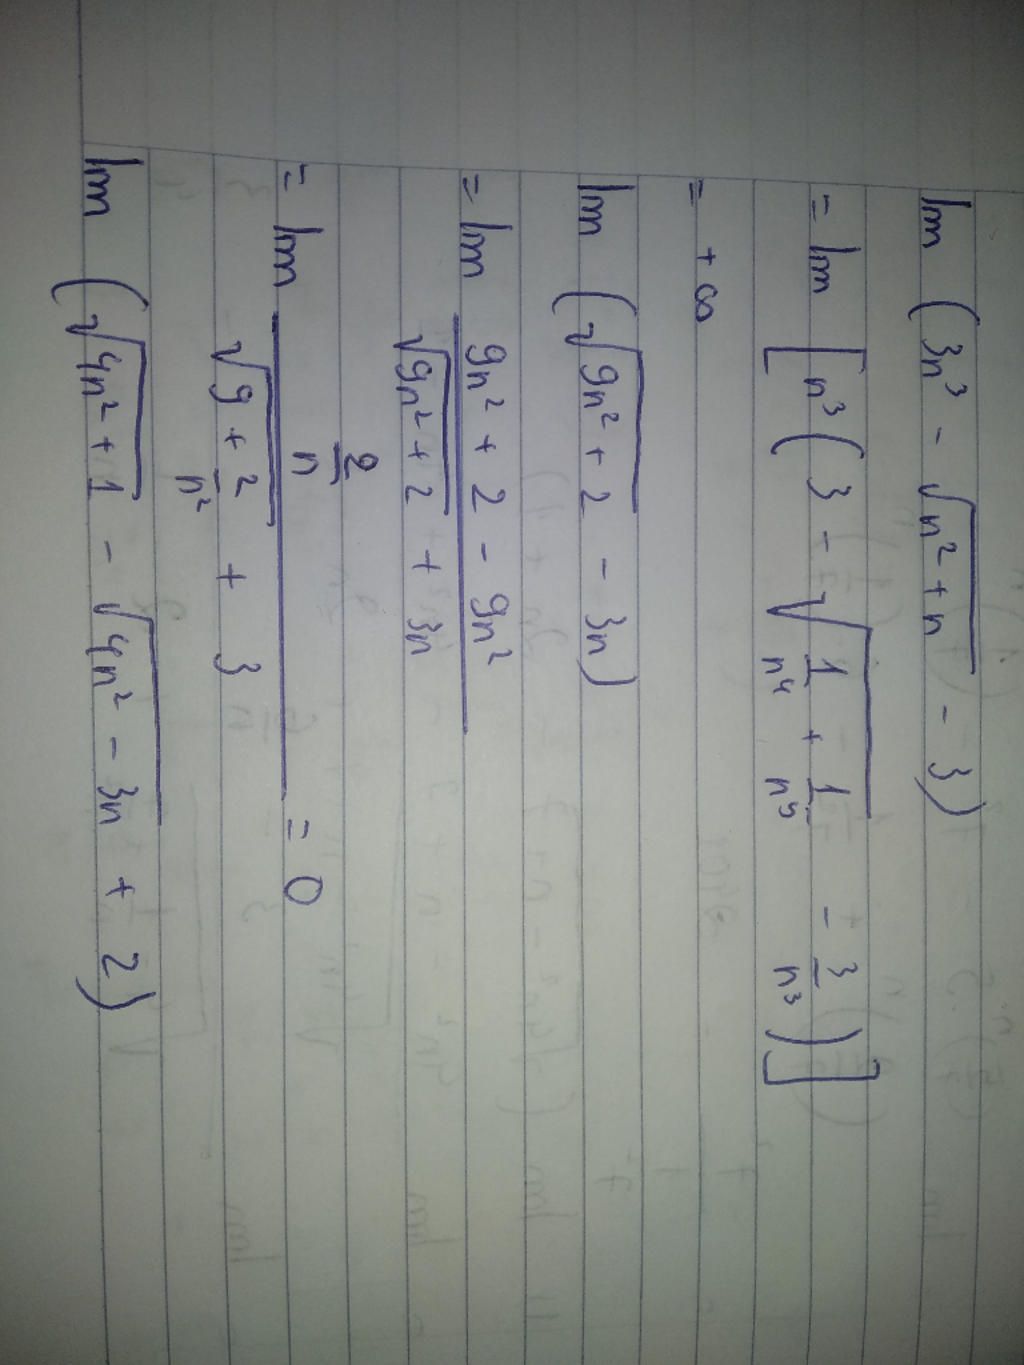 lim (3n³ - √(n² + n) - 3)
= lim [n³(3 - √(1/n⁴ + 1/n⁵) - 3/n³)]
= +∞
lim (√(9n² + 2) - 3n)
= lim (9n² + 2 - 9n²)/(√(9n² + 2) + 3n)
= lim (2/n)/(√(9 + 2/n²) + 3) = 0
lim (√(4n² + 1) - √(4n² - 3n) + 2)